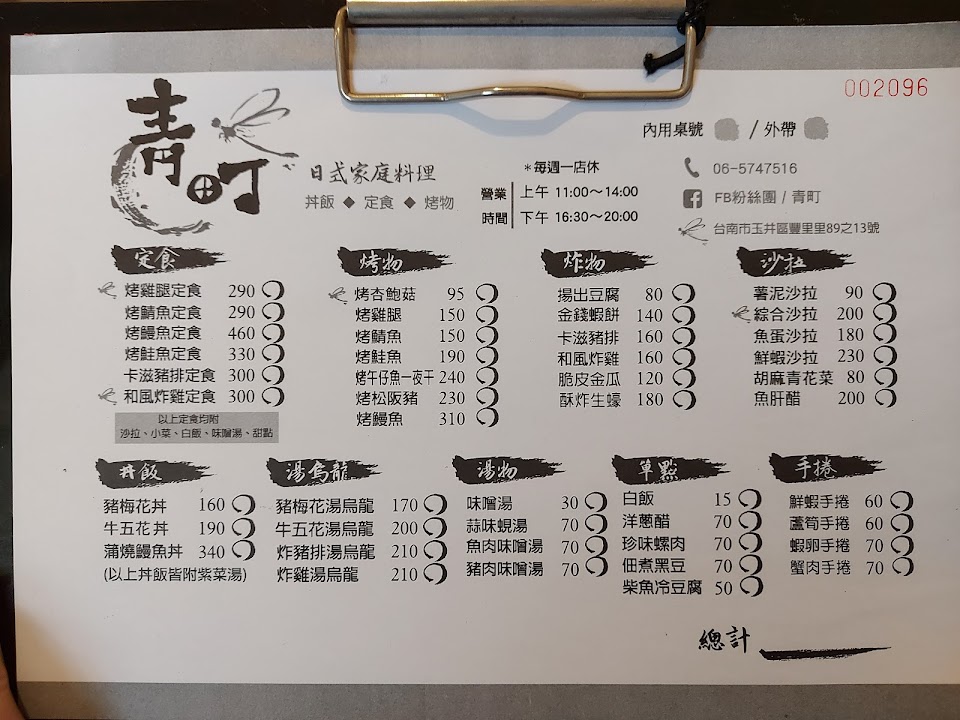 002096
青町
日式家庭料理
丼飯 ◆ 定食 ◆ 烤物
*每週一店休
營業時間
上午 11:00～14:00
下午 16:30～20:00
內用桌號 / 外帶
06-5747516
FB粉絲團 / 青町
台南市玉井區豐里里89之13號
定食
烤雞腿定食 290
烤鯖魚定食 290
烤鰻魚定食 460
烤鮭魚定食 330
卡滋豬排定食 300
和風炸雞定食 300
以上定食均附
沙拉、小菜、白飯、味噌湯、甜點
烤物
烤杏鮑菇 95
烤雞腿 150
烤鯖魚 150
烤鮭魚 190
烤午仔魚一夜干 240
烤松阪豬 230
烤鰻魚 310
炸物
揚出豆腐 80
金錢蝦餅 140
卡滋豬排 160
和風炸雞 160
脆皮金瓜 120
酥炸生蠔 180
沙拉
薯泥沙拉 90
綜合沙拉 200
魚蛋沙拉 180
鮮蝦沙拉 230
胡麻青花菜 80
魚肝醋 200
丼飯
豬梅花丼 160
牛五花丼 190
蒲燒鰻魚丼 340
(以上丼飯皆附紫菜湯)
湯烏龍
豬梅花湯烏龍 170
牛五花湯烏龍 200
炸豬排湯烏龍 210
炸雞湯烏龍 210
湯物
味噌湯 30
蒜味蜆湯 70
魚肉味噌湯 70
豬肉味噌湯 70
單點
白飯 15
洋蔥醋 70
珍味螺肉 70
佃煮黑豆 70
柴魚冷豆腐 50
手捲
鮮蝦手捲 60
蘆筍手捲 60
蝦卵手捲 70
蟹肉手捲 70
總計